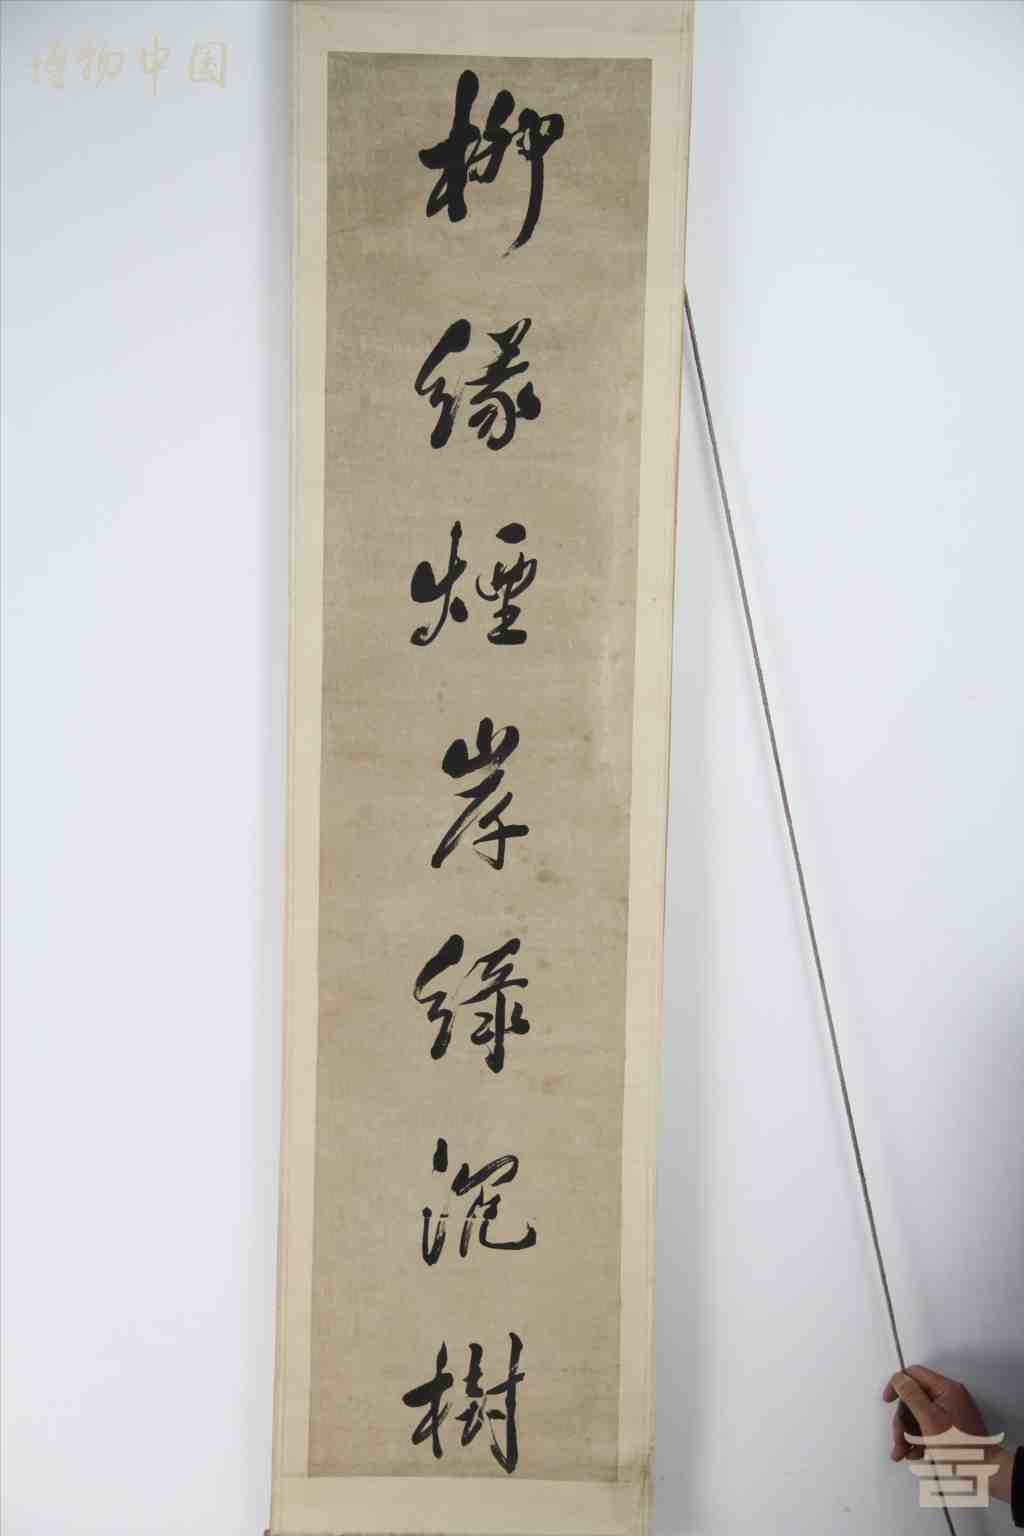 博物中国
柳缘煙岸綠沉樹